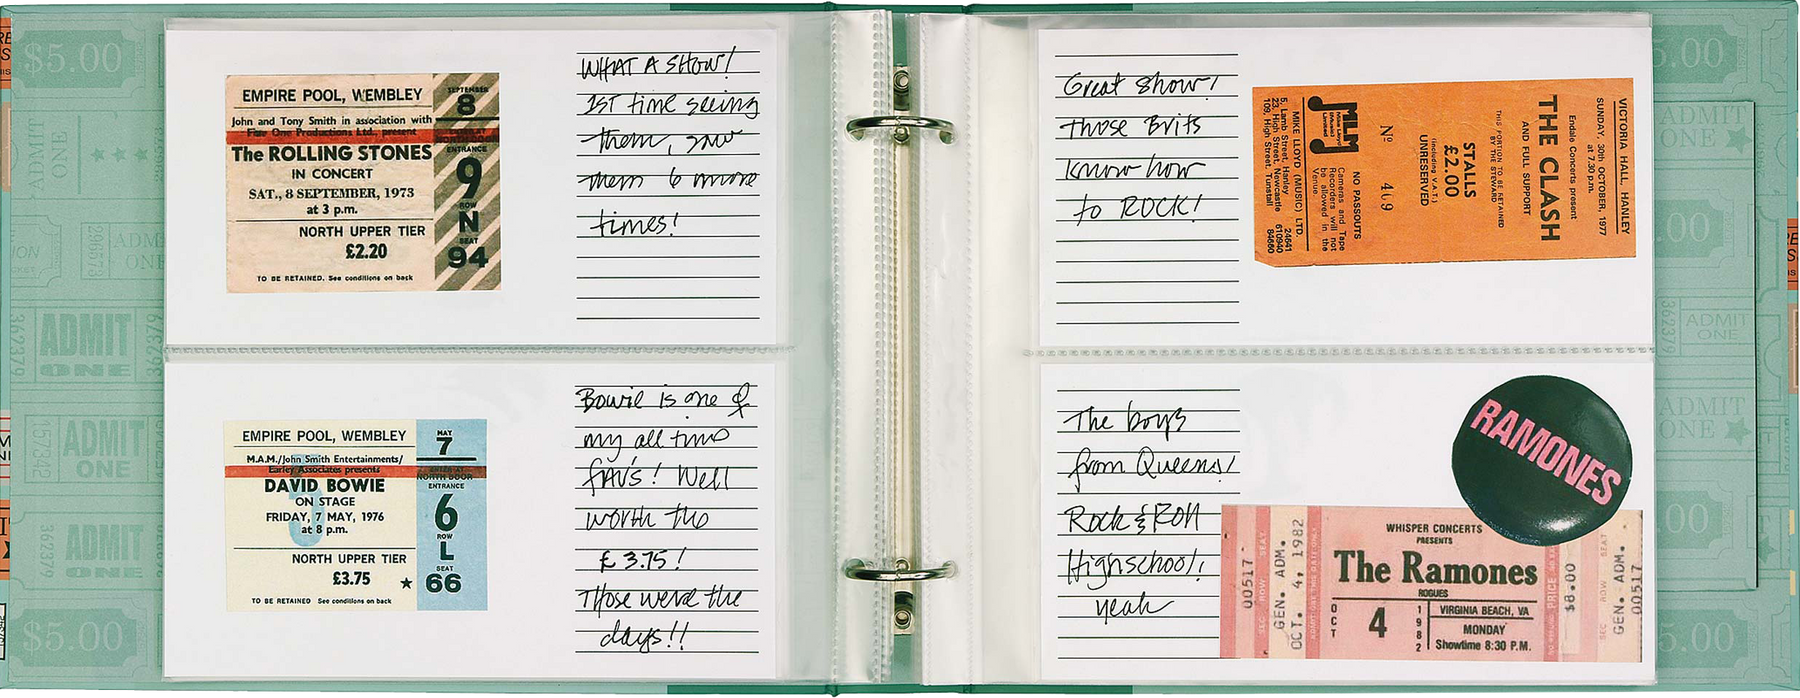 EMPIRE POOL, WEMBLEY
John and Tony Smith in association with
Five One Productions Ltd., present
The ROLLING STONES
IN CONCERT
SAT., 8 SEPTEMBER, 1973
at 3 p.m.
NORTH UPPER TIER
£2.20
TO BE RETAINED. See conditions on back
SEPTEMBER
8
ENTRANCE
9
ROW
N
SEAT
94
WHAT A SHOW!
1ST time seeing
them, saw
them 6 more
times!
EMPIRE POOL, WEMBLEY
M.A.M./John Smith Entertainments/
Earley Associates presents
DAVID BOWIE
ON STAGE
FRIDAY, 7 MAY, 1976
at 8 p.m.
NORTH UPPER TIER
£3.75
TO BE RETAINED See conditions on back
MAY
7
ENTER AT
NORTH DOOR
ENTRANCE
6
ROW
L
SEAT
66
Bowie is one of
my all time
fav's! Well
worth the
£3.75!
Those were the
days!!
Great show!
Those Brits
know how
to ROCK!
VICTORIA HALL, HANLEY
SUNDAY, 30th OCTOBER, 1977
at 7.30 p.m.
Endale Concerts present
THE CLASH
AND FULL SUPPORT
THIS PORTION TO BE RETAINED
BY THE STEWARD
STALLS
£2.00
(Including V.A.T.)
UNRESERVED
Nº 409
NO PASSOUTS
Cameras and Tape
Recorders will not
be allowed in the
Venue
MLM
MIKE LLOYD (MUSIC) LTD.
5, Lamb Street, Hanley 24641
23, High Street, Newcastle 610940
109, High Street, Tunstall 84660
The boys
from Queens!
Rock & Roll
Highschool!
yeah
RAMONES
00517
SEC ROW SEAT
GEN. ADM.
OCT. 4, 1982
WHISPER CONCERTS
PRESENTS
The Ramones
ROGUES
OCT
4
1982
VIRGINIA BEACH, VA
MONDAY
Showtime 8:30 P.M.
PRICE
$8.00
SEC ROW SEAT
GEN. ADM.
00517
$5.00
ADMIT
ONE
362379
ADMIT
ONE
157342
ADMIT
ONE
362379
$5.00
5.00
ADMIT
ONE
.00
ADMIT
ONE
362379
ADMIT
ONE
00
5.00